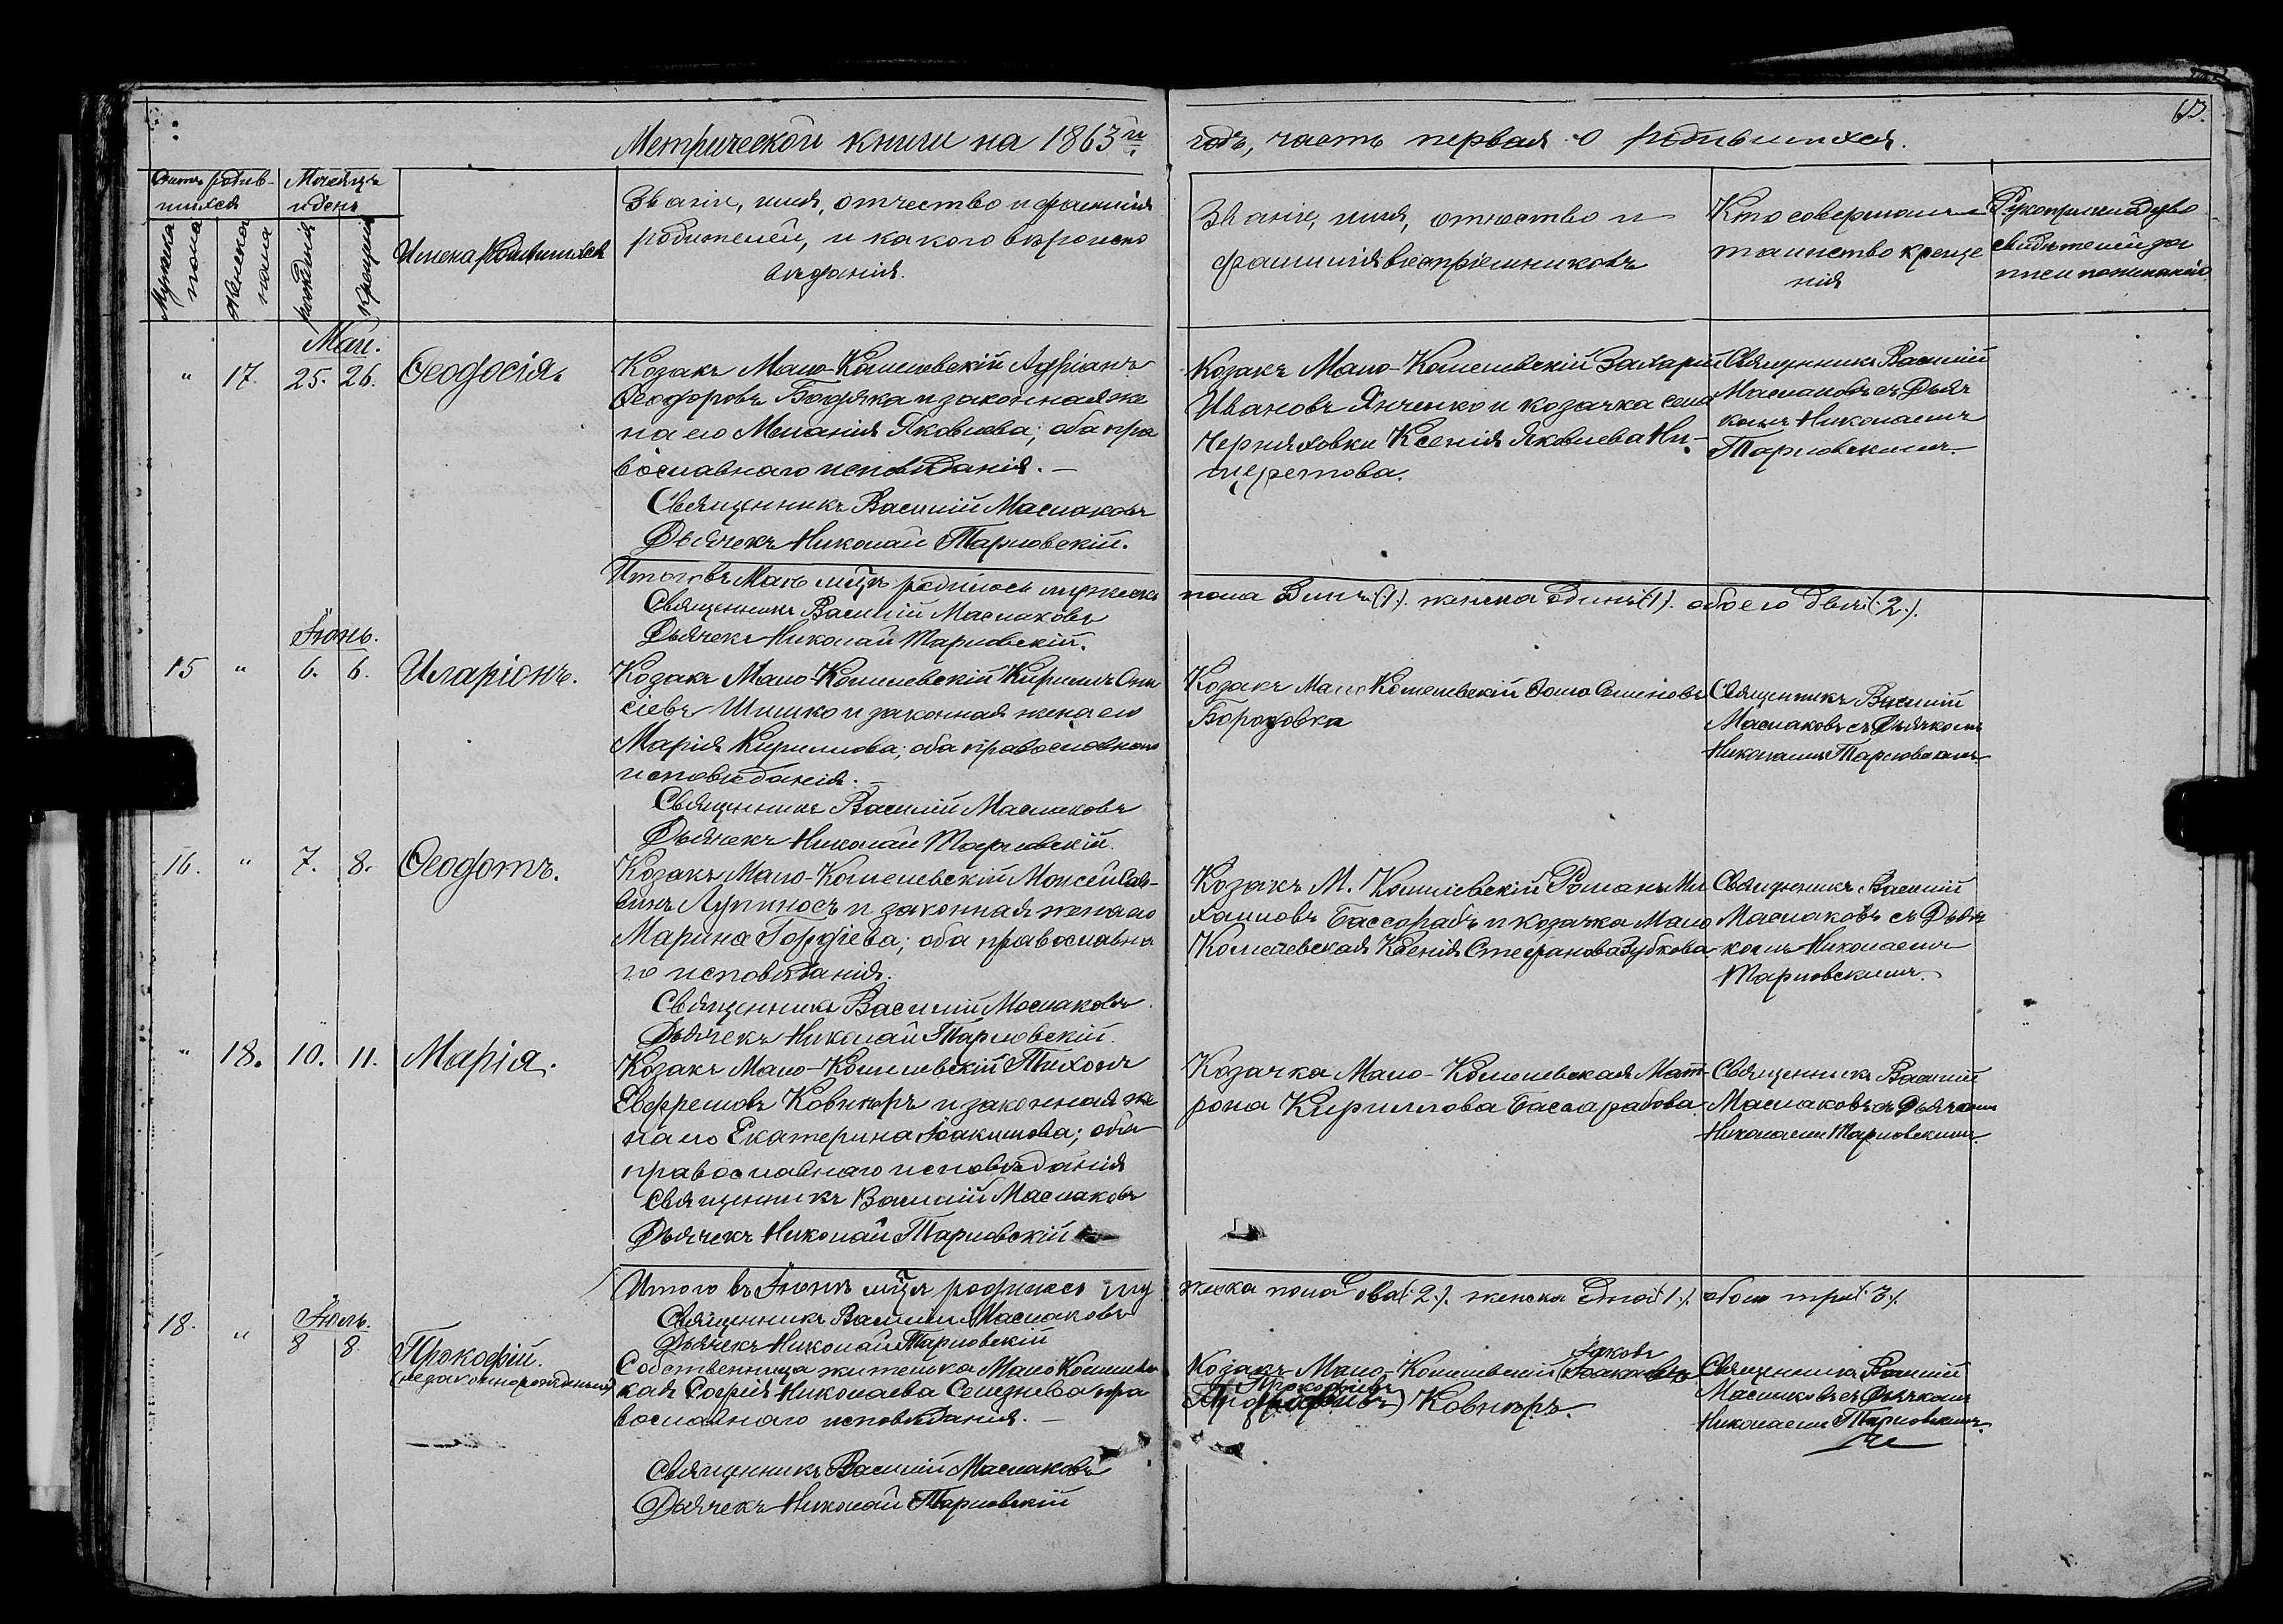 Метрической книги на 1863й
годъ, часть первая о родившихся.
Счетъ родив-
шихся
Мужеска пола
Женска пола
Месяцъ
и день
рожденія
крещенія
Имена родившихся
Званіе, имя, отчество и фамилія
родителей, и какого вѣроиспо
вѣданія.
Званіе, имя, отчество и
фамилія воспріемниковъ
Кто совершалъ
таинство креще
нія
Рукоприкладство
свидѣтелей
Маій.
" 17. 25. 26. Ѳеодосія.
Козакъ Мало-Кошелевскій Адріанъ
Ѳеодоровъ Бодряка и законная же
на его Меланія Яковлева; оба пра
вославнаго исповѣданія. —
Священникъ Василій Маслаковъ
Дьячекъ Николай Тарловскій.
Козакъ Мало-Кошелевскій Захарій
Ивановъ Янченко и козачка села
Черняховки Ксенія Яковлева Ни-
щеретова.
Священникъ Василій
Маслаковъ съ Дьяч
комъ Николаемъ
Тарловскимъ.
Итого въ Маѣ мцѣ родилось мужеска
пола Одинъ (1). женска одинъ (1). обоего двое (2).
Священникъ Василій Маслаковъ
Дьячекъ Николай Тарловскій.
Іюнь.
15 " 6. 6. Иларіонъ.
Козакъ Мало-Кошелевскій Кириллъ Они
сіевъ Шишко и законная жена его
Марія Кириллова; оба православнаго
исповѣданія. —
Священникъ Василій Маслаковъ
Дьячекъ Николай Тарловскій.
Козакъ Мало Кошелевскій Ѳома Семіновъ
Бородовка
Священникъ Василій
Маслаковъ съ Дьячкомъ
Николаемъ Тарловскимъ
16. " 7. 8. Ѳеодотъ.
Козакъ Мало-Кошелевскій Моисей Сав-
винъ Лупиносъ и законная жена его
Марина Гордіева; оба православна
го исповѣданія.
Священникъ Василій Маслаковъ
Дьячекъ Николай Тарловскій.
Козакъ М. Кошелевскій Романъ Ми
хаиловъ Бассорабъ и козачка Мало
Кошелевская Ксенія Стефанова Зубкова
Священникъ Василій
Маслаковъ съ Дьяч
комъ Николаемъ
Тарловскимъ.
" 18. 10. 11. Марія.
Козакъ Мало-Кошелевскій Тихонъ
Евфремовъ Ковнѣръ и законная же
на его Екатерина Іоакимова; оба
православнаго исповѣданія
Священникъ Василій Маслаковъ
Дьячекъ Николай Тарловскій
Козачка Мало-Кошелевская Мат-
рона Кириллова Бассарабова
Священникъ Василій
Маслаковъ съ Дьячкомъ
Николаемъ Тарловскимъ
Итого въ Іюнѣ мцѣ родилось му
жеска пола два (2). женска Одна (1). обоего три (3).
Священникъ Василій Маслаковъ
Дьячекъ Николай Тарловскій
Іюль.
18. " 8 8 Прокофій.
(незаконнорожденный)
Собственница жителька Мало Кошелевс
кая Софія Николаева Селезнева пра
вославнаго исповѣданія. —
Священникъ Василій Маслаковъ
Дьячекъ Николай Тарловскій
Іаковъ
Козакъ Мало-Кошелевскій
Прокофіевъ
Ковнѣръ.
Священникъ Василій
Маслаковъ съ Дьячкомъ
Николаемъ Тарловскимъ.